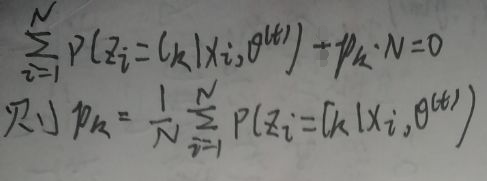 ∑_{i=1}^{N} P(z_i = C_k | x_i, θ^{(t)}) - p_k · N = 0
则 p_k = \frac{1}{N} ∑_{i=1}^{N} P(z_i = C_k | x_i, θ^{(t)})